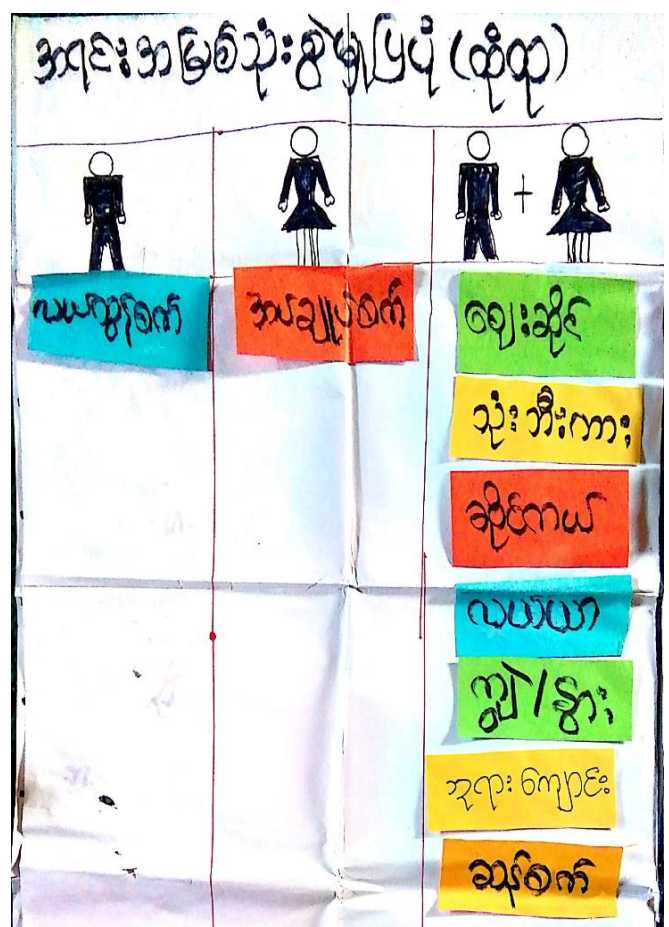 အရင်းအမြစ်သုံးစွဲမှုပြပုံ (ထုံထု)
+
လယ်ထွန်စက်
အပ်ချုပ်စက်
ဈေးဆိုင်
သုံးဘီးကား
ဆိုင်ကယ်
လယ်ယာ
ကျွဲ/နွား
ဘုရားကျောင်း
ဆန်စက်